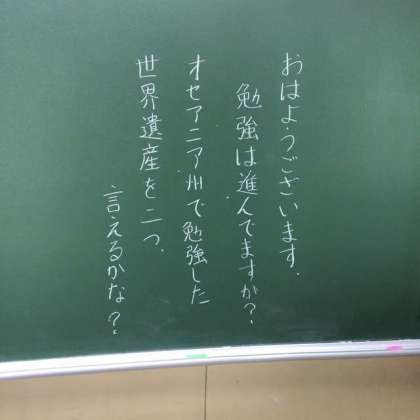 おはようございます.
勉強は進んでますか?
オセアニア州で勉強した
世界遺産を二つ.
言えるかな?